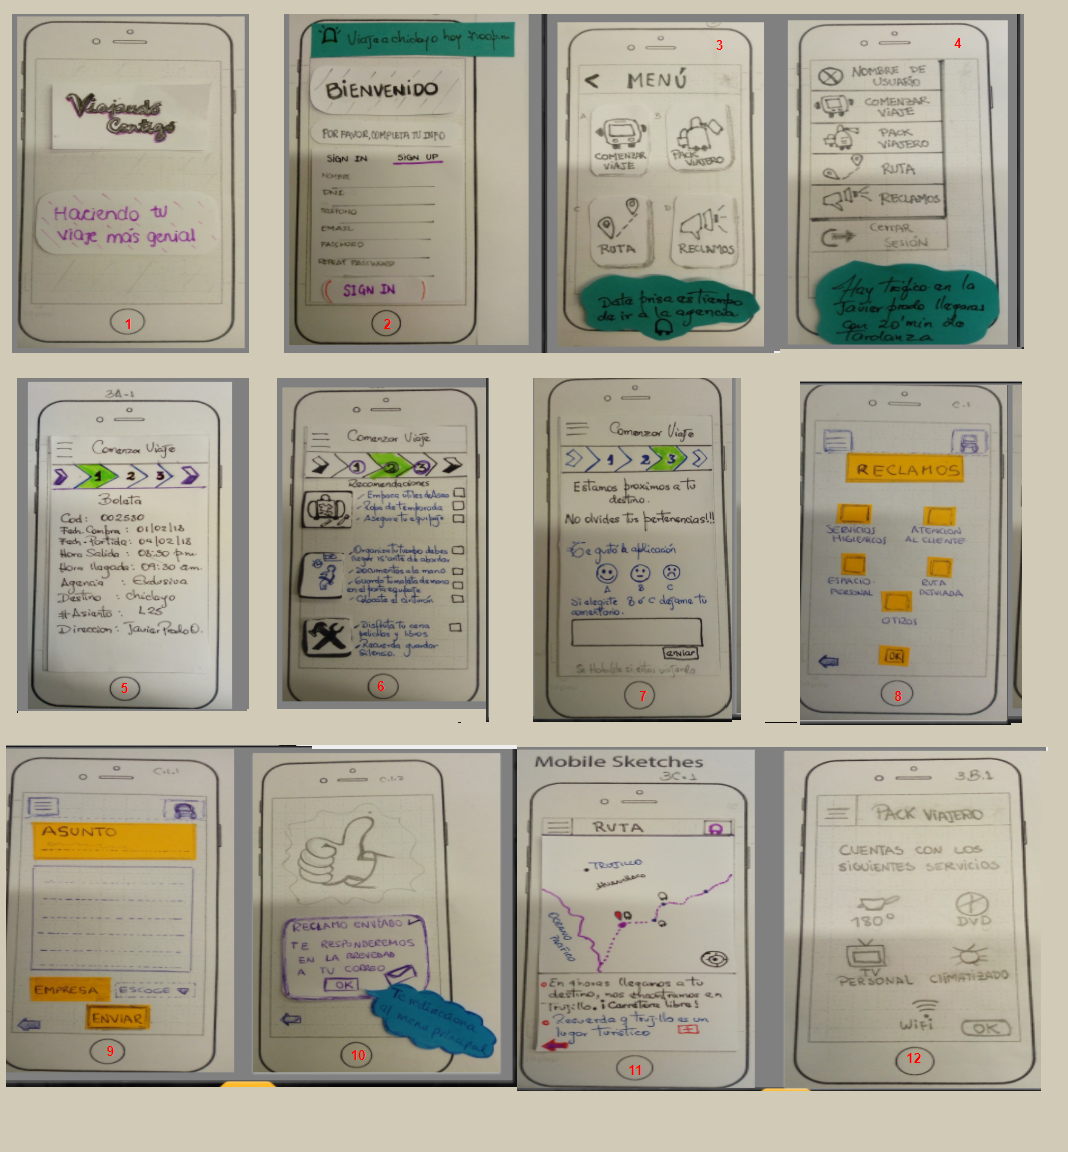 Viajando
Contigo
Haciendo tu
viaje más genial
1
Viaje a chiclayo hoy
BIENVENIDO
POR FAVOR, COMPLETA TU INFO
SIGN IN SIGN UP
NOMBRE
DNI
TELÉFONO
EMAIL
PASSWORD
REPEAT PASSWORD
SIGN IN
2
3
< MENÚ
A B
COMENZAR
VIAJE
PACK
VIAJERO
C D
RUTA
RECLAMOS
Date prisa es tiempo
de ir a la agencia
4
NOMBRE DE
USUARIO
COMENZAR
VIAJE
PACK
VIAJERO
RUTA
RECLAMOS
CERRAR
SESIÓN
Hay tráfico en la
Javier prado llegaras
con 20 min de
Tardanza
3A-1
Comenzar Viaje
1 2 3
Boleta
Cod: 002530
Fech. Compra: 01/02/18
Fech-Partida: 04/02/18
Hora Salida: 08:30 pm
Hora llegada: 09:30 am.
Agencia : Exclusiva
Destino : chiclayo
# Asiento : L25
Direccion: Javier Prado O.
5
Comenzar Viaje
1 2 3
Recomendaciones
Empaca útiles de Aseo
Ropa de temporada
Asegura tu equipaje
Organiza tu tiempo debes
llegar 15' antes de abordar
Documentos a la mano
Guarda tu maleta de mano
en el porta equipaje
Colocate el cinturón
Disfruta tu cena
películas y libros
Recuerda guardar
Silencio.
6
Comenzar Viaje
1 2 3
Estamos proximos a tu
destino.
No olvides tus pertenencias!!!
Te gustó la aplicación
A B C
Si elegiste B o C dejame tu
comentario.
enviar
Se Habilita si estas viajando
7
C.1
RECLAMOS
SERVICIOS
HIGIENICOS
ATENCION
AL CLIENTE
ESPACIO
PERSONAL
RUTA
DESVIADA
OTROS
OK
8
C.1.1
ASUNTO
EMPRESA ESCOGE
ENVIAR
9
C.1.2
RECLAMO ENVIADO
TE RESPONDEREMOS
EN LA BREVEDAD
A TU CORREO
OK
Te redirecciona
al menu principal
10
Mobile Sketches
3C.1
RUTA
TRUJILLO
OCEANO
PACIFICO
En 4 horas llegamos a tu
destino, nos encontramos en
Trujillo. ¡Carretera libre!
Recuerda q trujillo es un
lugar turístico +
11
3.B.1
PACK VIAJERO
CUENTAS CON LOS
SIGUIENTES SERVICIOS
180° DVD
TV
PERSONAL
CLIMATIZADO
WiFi OK
12